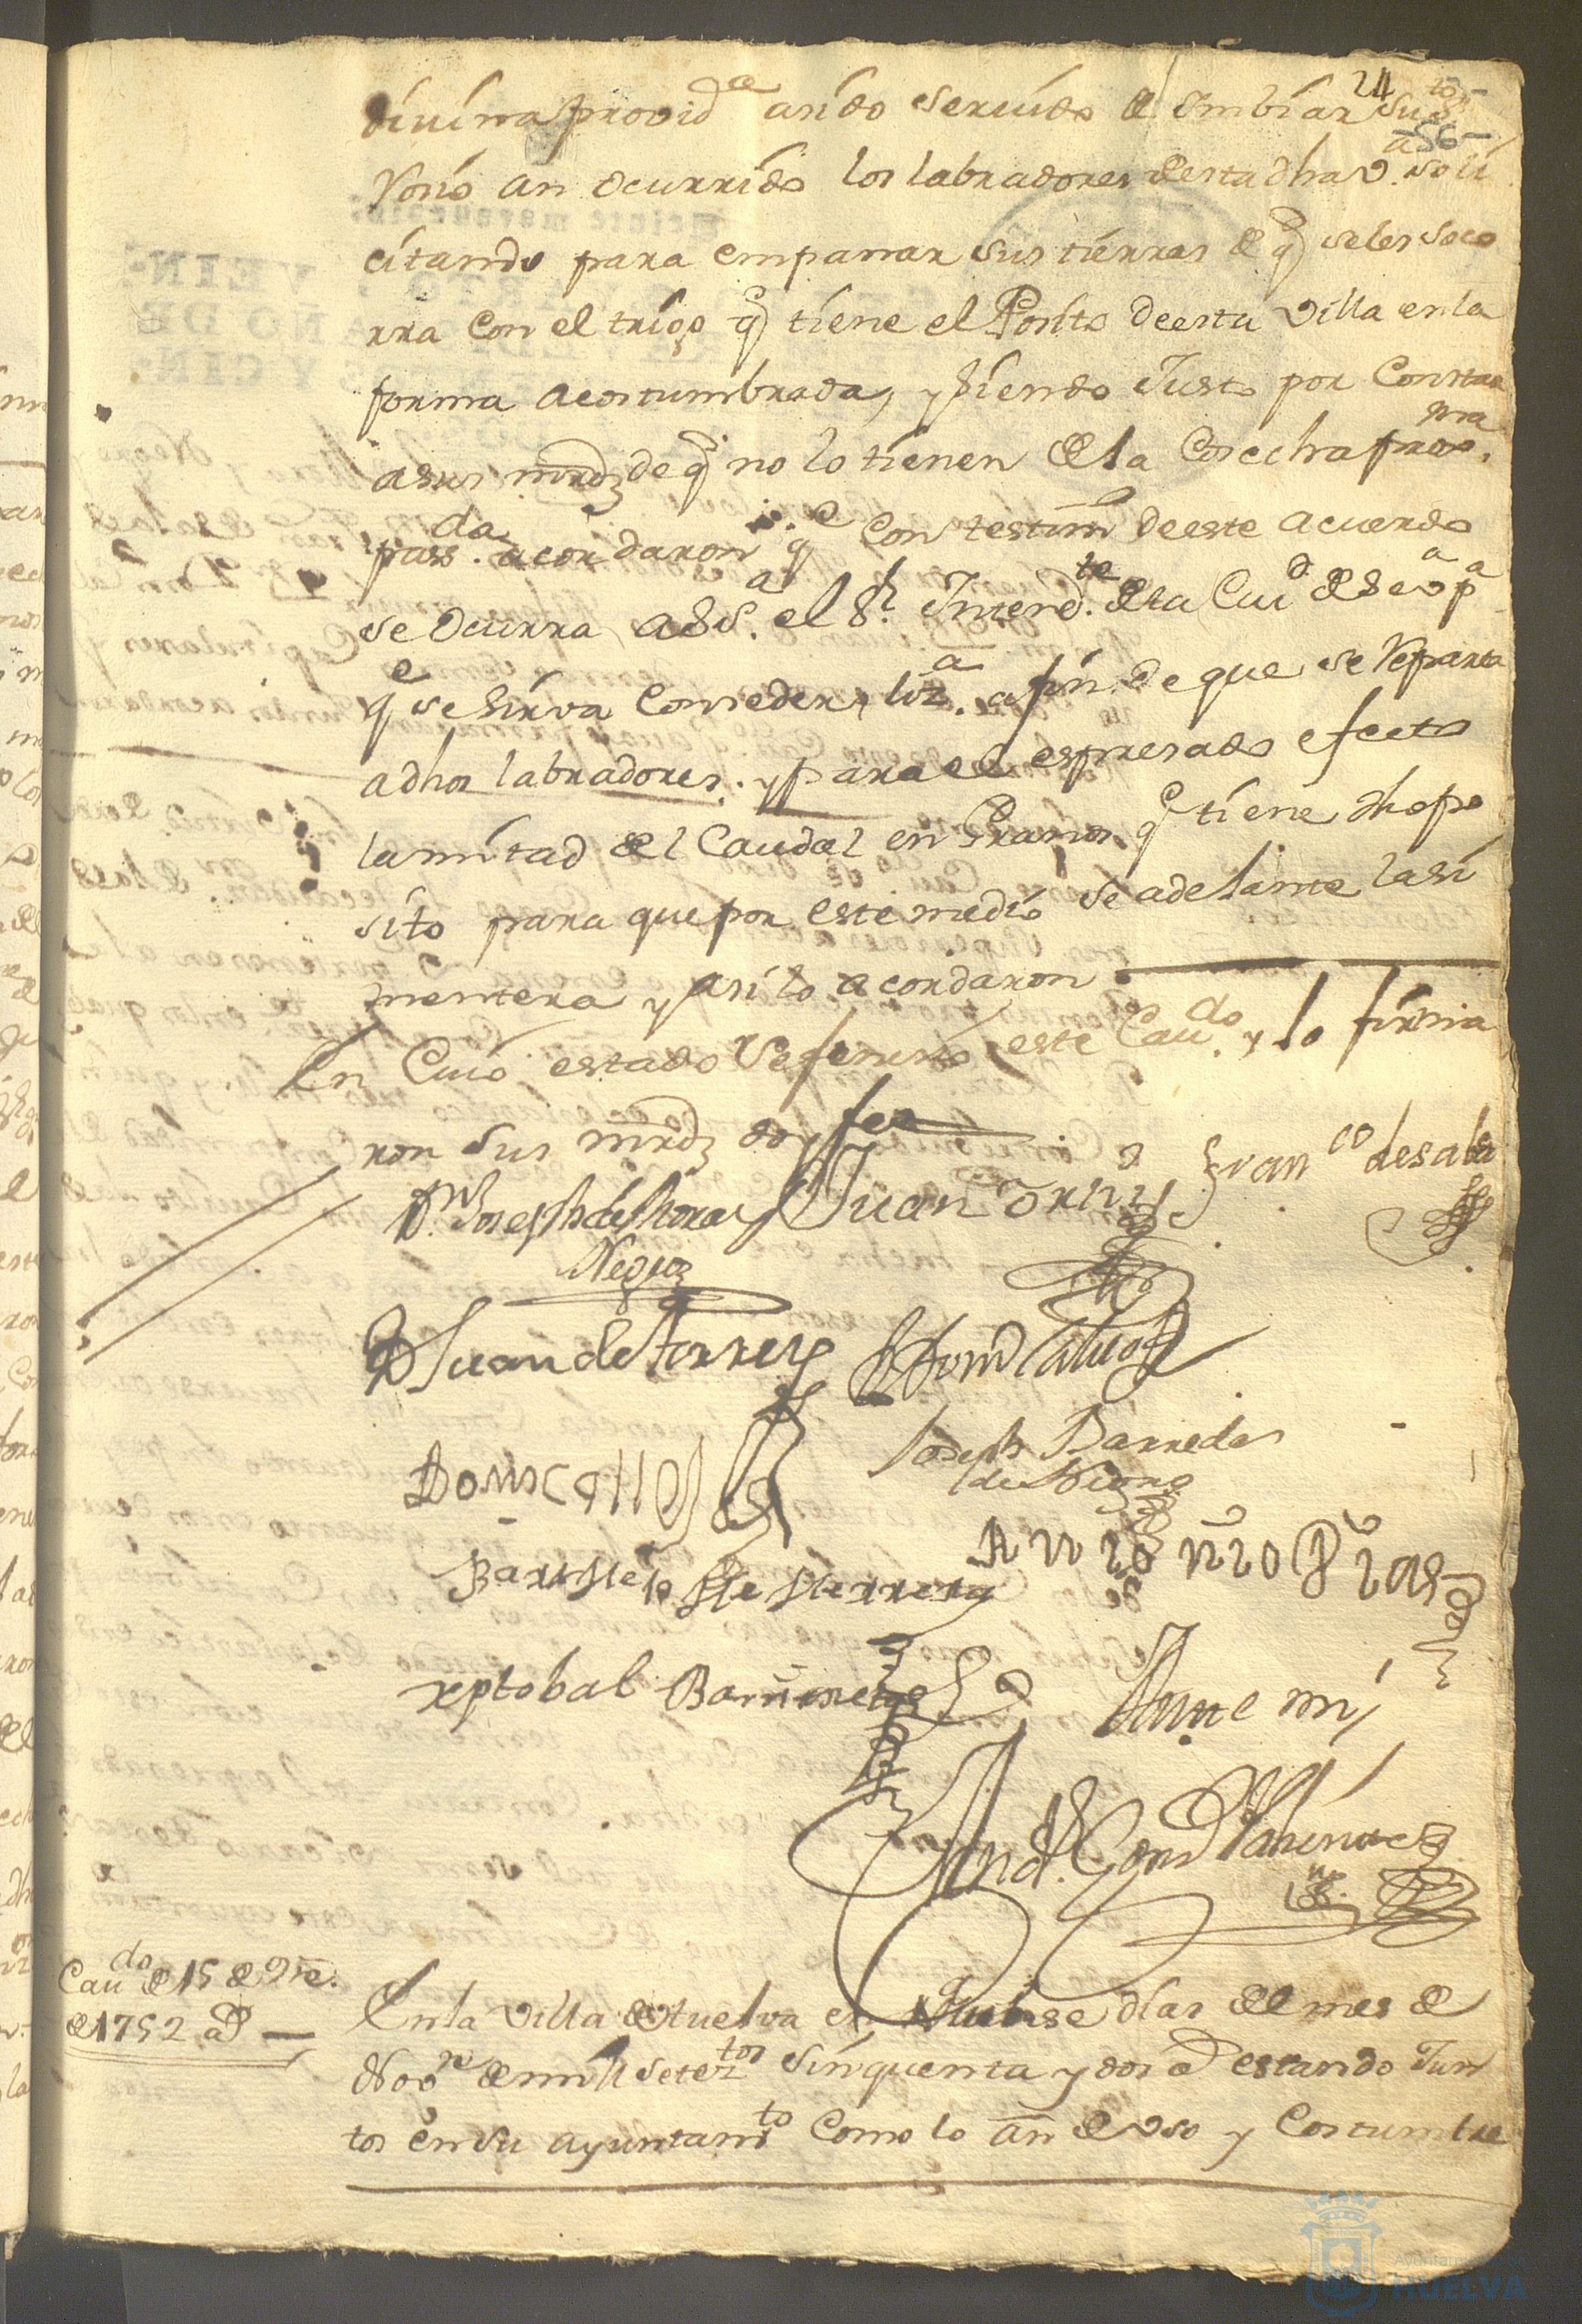 24
56
divina provid.ª a sido seruido de Imbiar su
Rosío an ocurrido los labradores desta dha v. soli
citando para empanar sus tierras de q̃ seles soco
rra con el trigo q̃ tiene el Posito deesta Villa enla
forma acostumbrada, y siendo Justo por Constar
asus mrds de q̃ no lo tienen de la Cosecha prox.ma
pass.da acordaron q.e Con testim.o deeste acuerdo
se Ocurra a S S.ª el S.r Intend.te de la Ciu.d de Seu.ª p.ª
q.e se Sirva Conseder liz.ª a fin de que se Reparta
adhos labradores. y para el espresado efecto
la mitad del Caudal en Granos q̃ tiene dho po
sito para que por este medio se adelante la si
mentera y asi lo acordaron
En Cuio estado Sefenesio este Cau.do y lo firma
ron Sus mrds doy fee
D.n Joseph de Mora y
Negro
Juan Ortiz
Fran.co de sala
D Juan de Torres
Joseph Barredas
Antonio Dias
xptobal Barrera
Ante mi
Cau.do de 15 de 9re.
de 1752 a.s
Enla Villa de Huelva en Quinse dias del mes de
Nov.re de mil setez.tos sinquenta y dos a.s estando Jun
tos en su ayuntam.to Como lo an de Uso y Costumbre
Ayuntamiento de
HUELVA